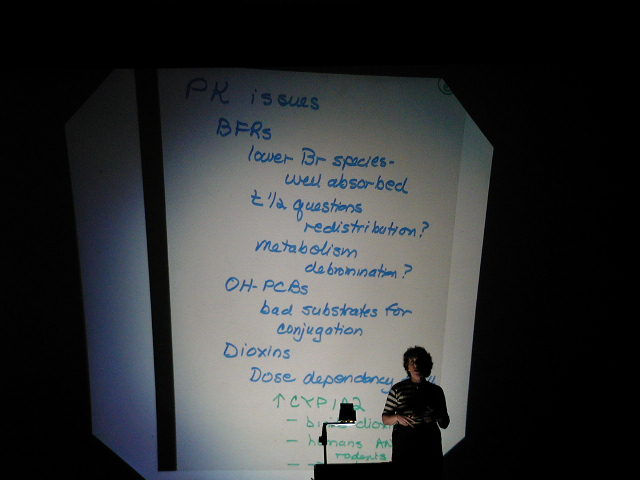 PK issues
BFRs
lower Br species-
well absorbed
t 1/2 questions
redistribution?
metabolism
debromination?
OH-PCBs
bad substrates for
conjugation
Dioxins
Dose dependency
↑ CYP1A2
-
- humans AN
rodents
-